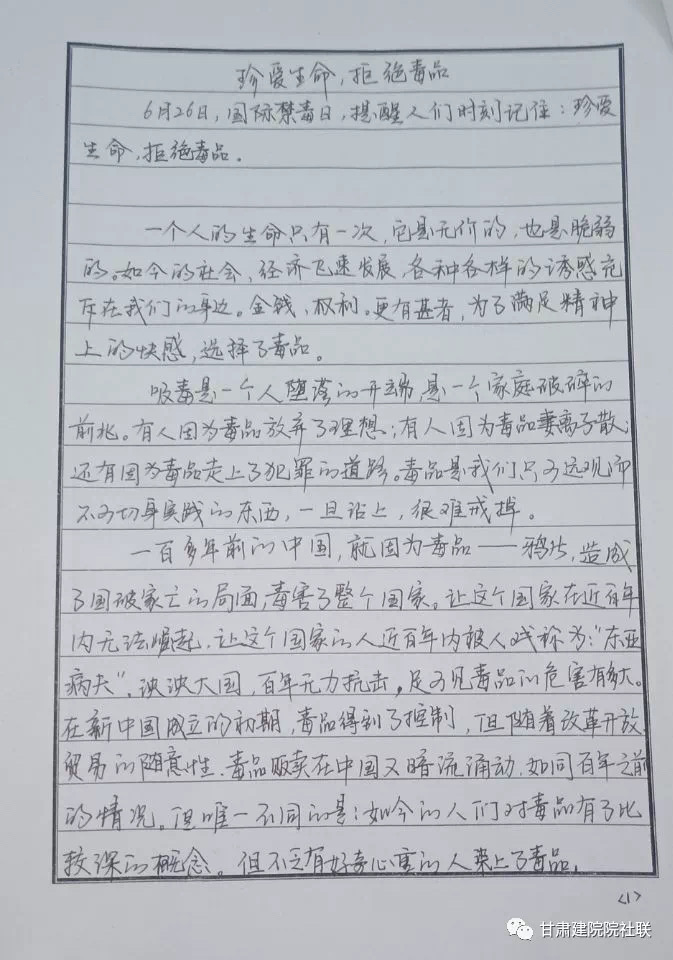 珍爱生命，拒绝毒品
6月26日，国际禁毒日，提醒人们时刻记住：珍爱
生命，拒绝毒品。
一个人的生命只有一次，它是无价的，也是脆弱
的。如今的社会，经济飞速发展，各种各样的诱惑充
斥在我们的身边。金钱、权利。更有甚者，为了满足精神
上的快感，选择了毒品。
吸毒是一个人堕落的开端，是一个家庭破碎的
前兆。有人因为毒品放弃了理想；有人因为毒品妻离子散；
还有因为毒品走上了犯罪的道路。毒品是我们只可远观而
不可切身实践的东西，一旦沾上，很难戒掉。
一百多年前的中国，就因为毒品——鸦片，造成
了国破家亡的局面，毒害了整个国家。让这个国家在近百年
内无法崛起，让这个国家的人近百年内被人戏称为：“东亚
病夫”。泱泱大国，百年无力抗击，足可见毒品的危害有多大。
在新中国成立的初期，毒品得到了控制，但随着改革开放，
贸易的随意性，毒品贩卖在中国又暗流涌动，如同百年之前
的情况。但唯一不同的是：如今的人们对毒品有了比
较深的概念。但不乏有好奇心重的人染上了毒品，
<1>
甘肃建院院社联